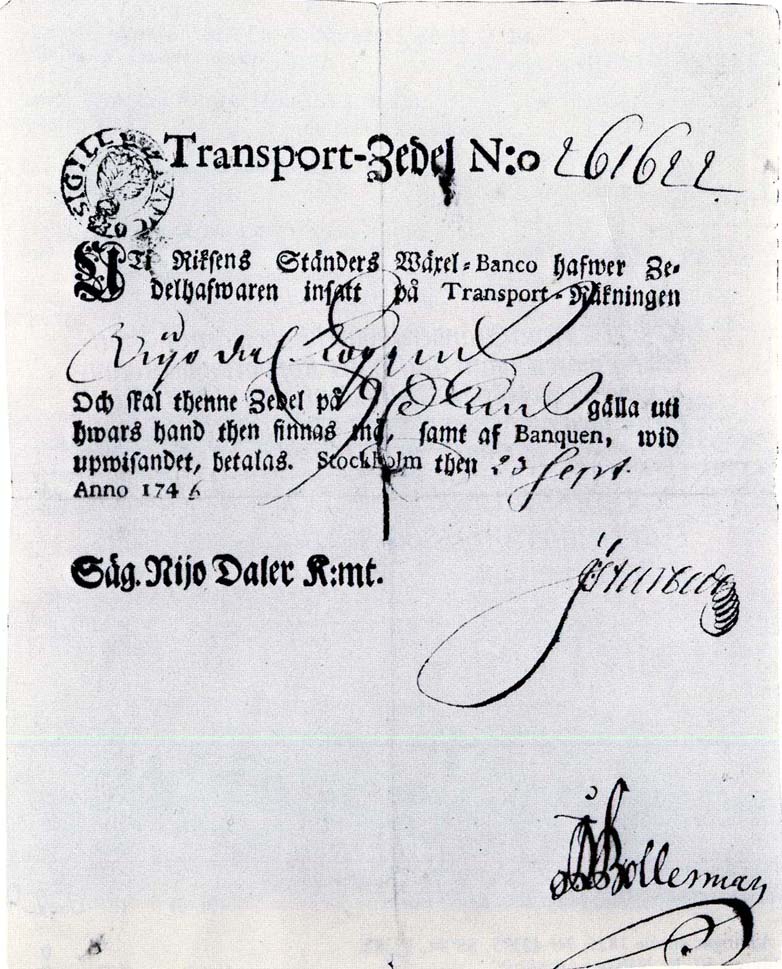 SIGILL
Transport-Zedel N:o 261622
UTi Riksens Ständers Wäxel-Banco hafwer Ze-
delhafwaren insatt på Transport-Räkningen
Nijo dal
Och skal thenne Zedel på gälla uti
hwars hand then finnas må, samt af Banquen, wid
upwisandet, betalas. Stockholm then 23 Sept.
Anno 1746
Säg. Nijo Daler K:mt.
Bollerman